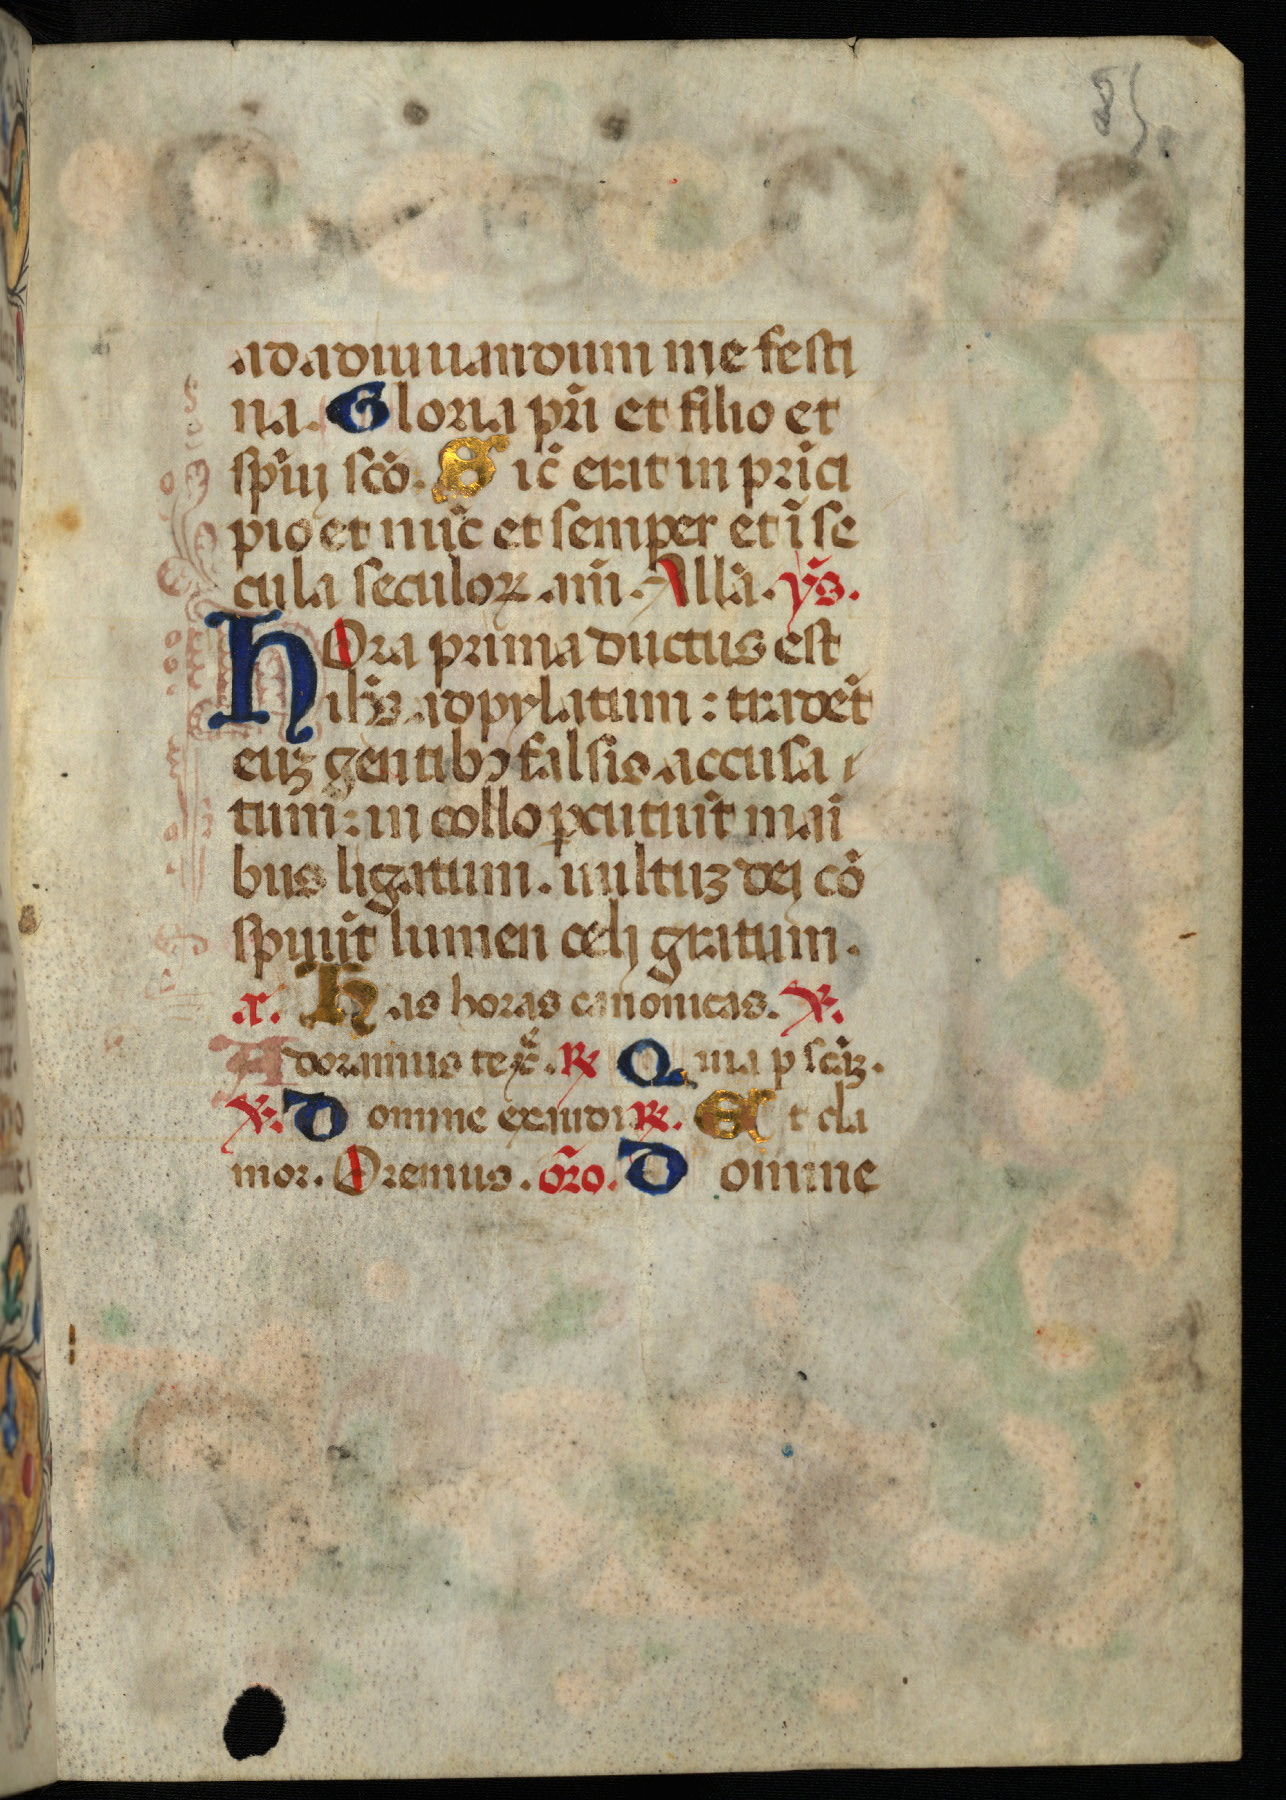 85.
ad adiuuandum me festi
na. Gloria pr̃i et filio et
sp̃iɉ sc̃o. Sic̃ erat in prĩci
pio et nũc et semper et ĩ se
cula seculoꝝ am̃. All̃a. ym̃s.
HOra prima ductus est
ih̃s ad pylatum : tradẽt
euꝫ gentibꝫ falsis accusa
tum : in collo ꝑcutiũt mãi
bus ligatum. uultuꝫ dei cõ
spuũt lumen celi gratum.
a. Has horas canonicas. ℣.
Adoramus te xp̃e. ℟ Quia p sc̃aꝫ.
℣. Domine exaudi ℟. Et cla
mor. Oremus. or̃o. Domine